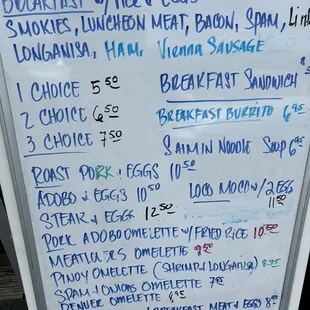 BREAKFAST w/ RICE & EGGS
SMOKIES, LUNCHEON MEAT, BACON, SPAM, Link
LONGANISA, HAM, Vienna SAUSAGE
1 CHOICE 5.50
2 CHOICE 6.50
3 CHOICE 7.50
BREAKFAST SANDWICH
BREAKFAST BURRITO 6.95
SAIMIN NOODLE SOUP 6.95
ROAST PORK & EGGS 10.50
ADOBO & EGGS 10.50
LOCO MOCO w/ 2 EGG
11.50
STEAK & EGGS 12.50
PORK ADOBO OMELETTE w/ FRIED RICE 10.50
MEATLOVERS OMELETTE 9.50
PINOY OMELETTE (SHRIMP & LONGANISA) 8.75
SPAM & ONIONS OMELETTE
DENVER OMELETTE
BREAKFAST MEAT & EGGS